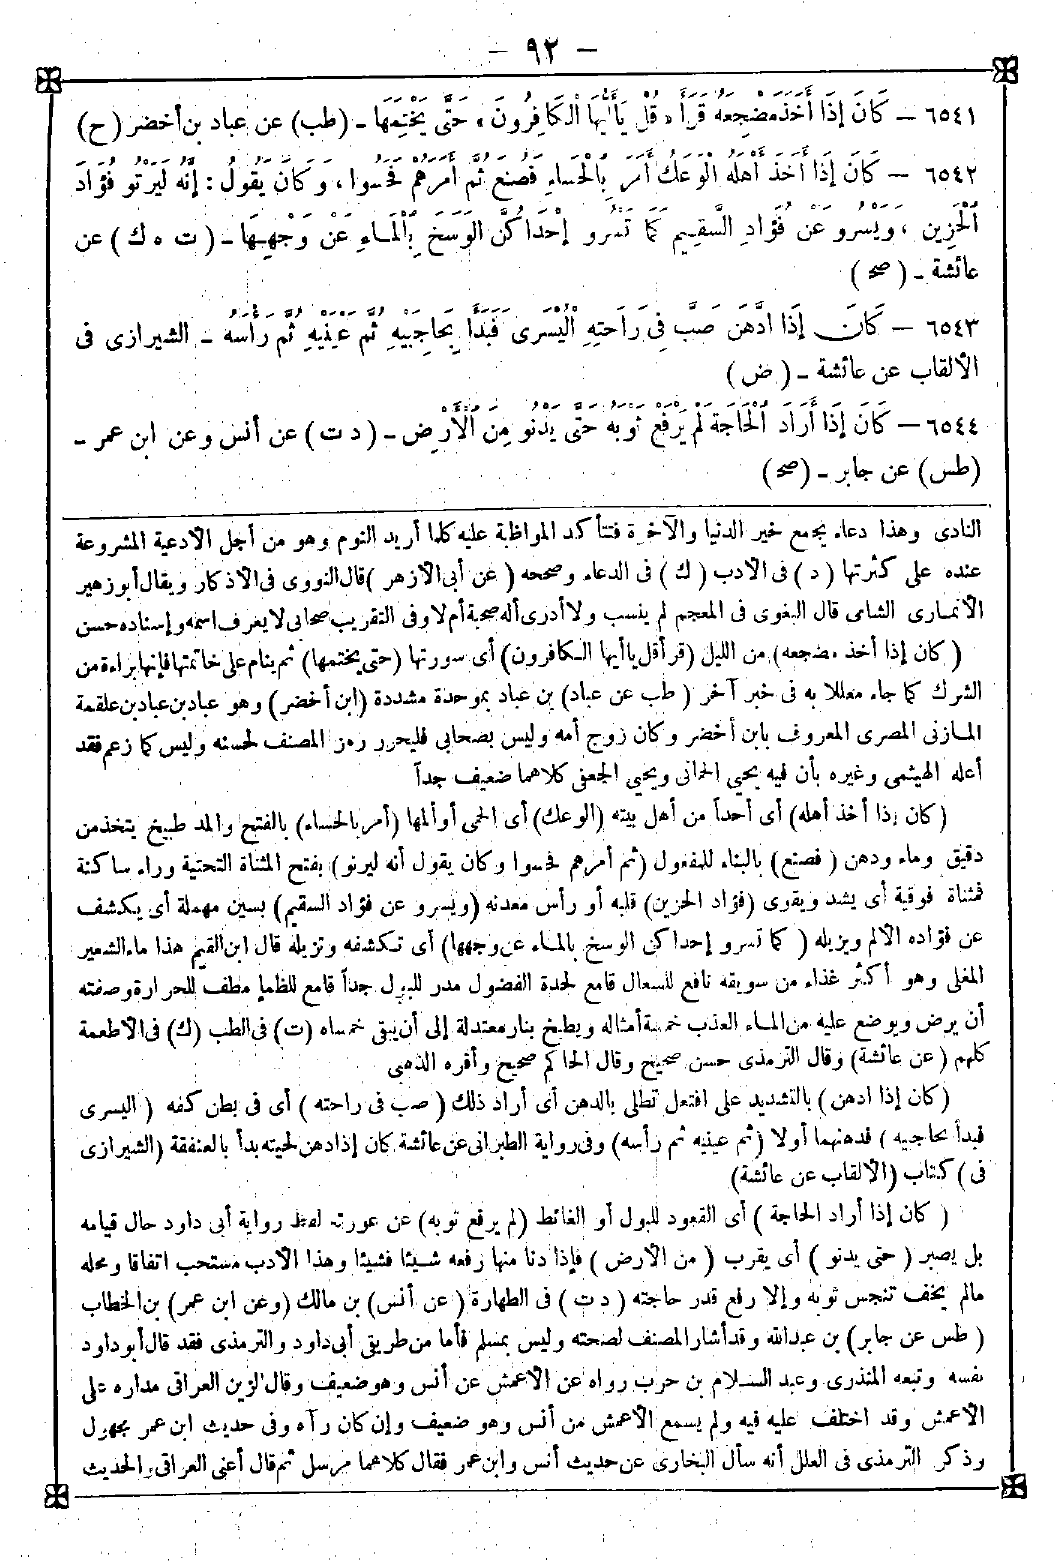 - ٩٢ -
٦٥٤١ – كَانَ إِذَا أَخَذَ مَضْجِعَهُ قَرَأَ «قُلْ يَا أَيُّهَا الْكَافِرُونَ» حَتَّى يَخْتِمَهَا - (طب) عن عباد بن أخضر (ح)
٦٥٤٢ – كَانَ إِذَا أَخَذَ أَهْلَهُ الْوَعَكُ أَمَرَ بِالْحَسَاءِ فَصُنِعَ ثُمَّ أَمَرَهُمْ فَحَسَوْا، وَكَانَ يَقُولُ: إِنَّهُ لَيَرْتُو فُؤَادَ
الْحَزِينِ، وَيَسْرُو عَنْ فُؤَادِ السَّقِيمِ كَمَا تَسْرُو إِحْدَاكُنَّ الْوَسَخَ بِالْمَاءِ عَنْ وَجْهِهَا - (ت ه ك) عن
عائشة - (صح)
٦٥٤٣ – كَانَ إِذَا ادَّهَنَ صَبَّ فِى رَاحَتِهِ الْيُسْرَى فَبَدَأَ بِحَاجِبَيْهِ ثُمَّ عَيْنَيْهِ ثُمَّ رَأْسَهُ - الشيرازى فى
الألقاب عن عائشة - (ض)
٦٥٤٤ – كَانَ إِذَا أَرَادَ الْحَاجَةَ لَمْ يَرْفَعْ ثَوْبَهُ حَتَّى يَدْنُوَ مِنَ الْأَرْضِ - (د ت) عن أنس وعن ابن عمر -
(طس) عن جابر - (صح)
النادى وهذا دعاء يجمع خير الدنيا والآخرة فتتأكد المواظبة عليه كلما أريد النوم وهو من أجل الأدعية المشروعة
عنده على كثرتها (د) فى الادب (ك) فى الدعاء وصححه (عن أبى الأزهر) قال النووى فى الاذكار ويقال أبو زهير
الأنمارى الشامى قال البغوى فى المعجم لم ينسب ولا أدرى أله صحبة أم لا وفى التقريب صحابى لا يعرف اسمه وإسناده حسن
(كان إذا أخذ مضجعه) من الليل (قرأ قل يا أيها الكافرون) أى سورتها (حتى يختمها) ثم ينام على خاتمتها فإنها براءة من
الشرك كما جاء معللا به فى خبر آخر (طب عن عباد) بن عباد بموحدة مشددة (ابن أخضر) وهو عباد بن عباد بن علقمة
المازنى المصرى المعروف بابن أخضر وكان زوج أمه وليس بصحابى فليحرر رمز المصنف لحسنه وليس كما زعم فقد
أعله الهيثمى وغيره بأن فيه يحيى الحمانى ويحيى الجعفى كلاهما ضعيف جداً
(كان إذا أخذ أهله) أى أحداً من أهل بيته (الوعك) أى الحمى أو ألمها (أمر بالحساء) بالفتح والمد طبيخ يتخذ من
دقيق وماء ودهن (فصنع) بالبناء للمفعول (ثم أمرهم فحسوا وكان يقول أنه ليرتو) بفتح المثناة التحتية وراء ساكنة
فمثناة فوقية أى يشد ويقوى (فؤاد الحزين) قلبه أو رأس معدته (ويسرو عن فؤاد السقيم) بسين مهملة أى يكشف
عن فؤاده الألم ويزيله (كما تسرو إحداكن الوسخ بالماء عن وجهها) أى تكشفه وتزيله قال ابن القيم هذا ماء الشعير
المغلى وهو أكثر غذاء من سويقه نافع للسعال قامع لحدة الفضول مدر للبول جداً قامع للظمإ مطف للحرارة وصفته
أن يرض ويوضع عليه من الماء العذب خمسة أمثاله ويطبخ بنار معتدلة إلى أن يبقى خمساه (ت) فى الطب (ك) فى الاطعمة
كلهم (عن عائشة) وقال الترمذى حسن صحيح وقال الحاكم صحيح وأقره الذهبى
(كان إذا ادهن) بالتشديد على افتعل تطلى بالدهن أى أراد ذلك (صب فى راحته) أى فى بطن كفه (اليسرى
فبدأ بحاجبيه) فدهنهما أولا (ثم عينيه ثم رأسه) وفى رواية الطبرانى عن عائشة كان إذا دهن لحيته بدأ بالعنفقة (الشيرازى
فى) كتاب (الألقاب عن عائشة)
(كان إذا أراد الحاجة) أى القعود للبول أو الغائط (لم يرفع ثوبه) عن عورته لفظ رواية أبى داود حال قيامه
بل يصبر (حتى يدنو) أى يقرب (من الأرض) فإذا دنا منها رفعه شيئا فشيئا وهذا الأدب مستحب اتفاقا ومحله
مالم يخف تنجس ثوبه وإلا رفع قدر حاجته (د ت) فى الطهارة (عن أنس) بن مالك (وعن ابن عمر) بن الخطاب
(طس عن جابر) بن عبدالله وقد أشار المصنف لصحته وليس بمسلم فأما من طريق أبى داود والترمذى فقد قال أبو داود
نفسه وتبعه المنذرى وعبد السلام بن حرب رواه عن الأعمش عن أنس وهو ضعيف وقال الزين العراقى مداره على
الأعمش وقد اختلف عليه فيه ولم يسمع الأعمش من أنس وهو ضعيف وإن كان رآه وفى حديث ابن عمر مجهول
وذكر الترمذى فى العلل أنه سأل البخارى عن حديث أنس وابن عمر فقال كلاهما مرسل ثم قال أعنى العراقى والحديث